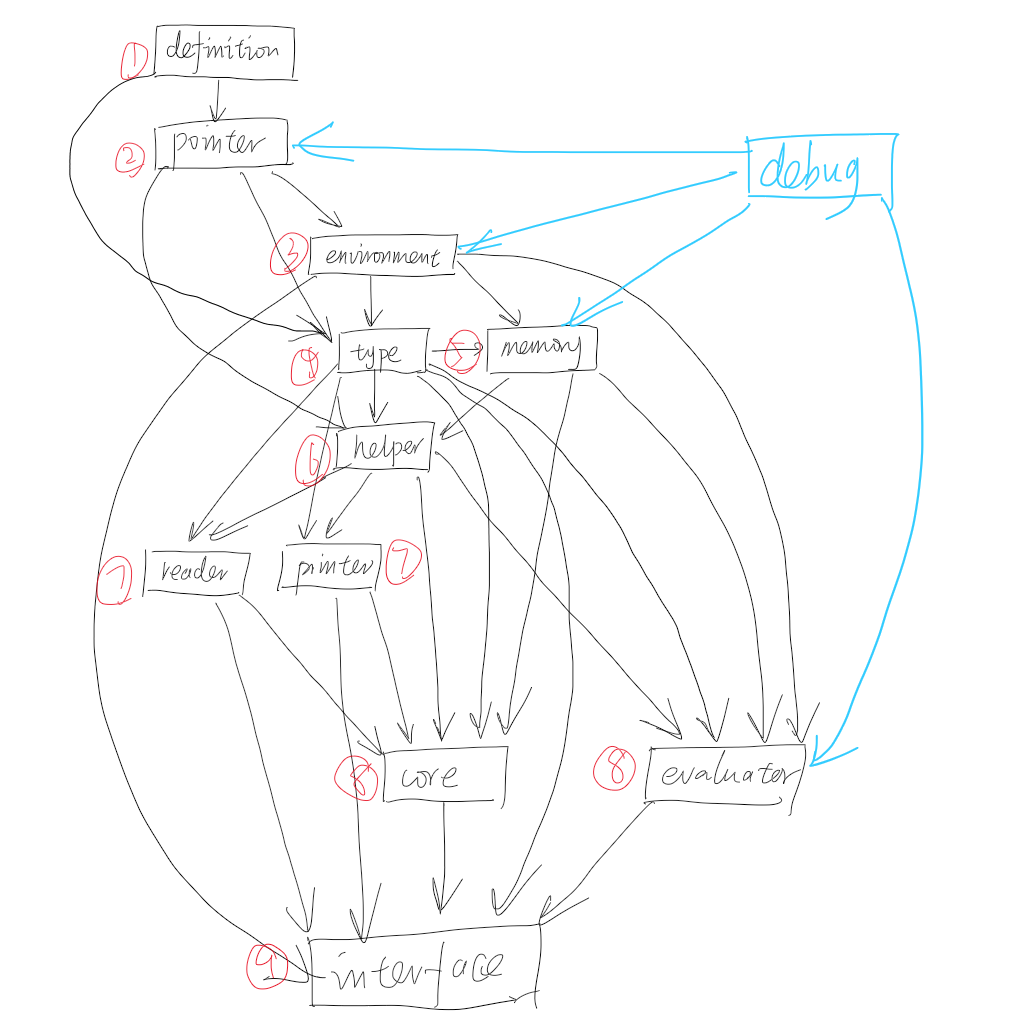 ① definition
② pointer
debug
③ environment
④ type
⑤ memory
⑥ helper
⑦ reader
printer ⑦
⑧ core
⑧ evaluator
⑨ interface